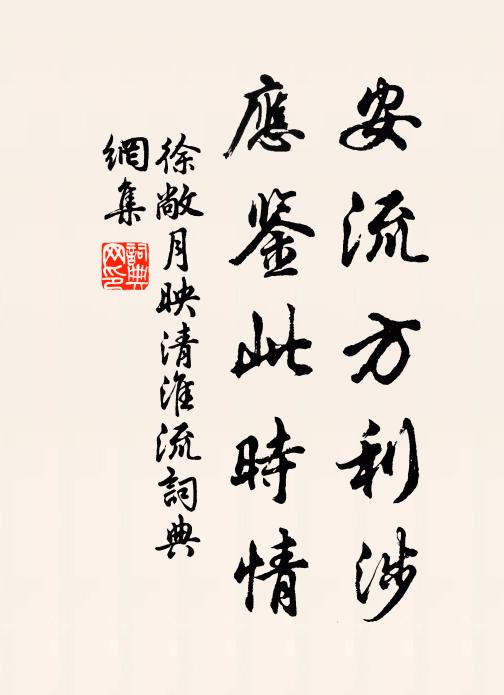 安流方利涉
應鑒此時情
徐敞月映清淮流詞典
網集
詞典網印